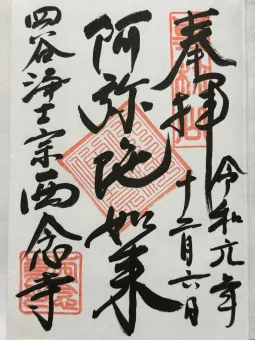 奉拝
令和元年
十二月六日
阿弥陀如来
四谷浄土宗西念寺